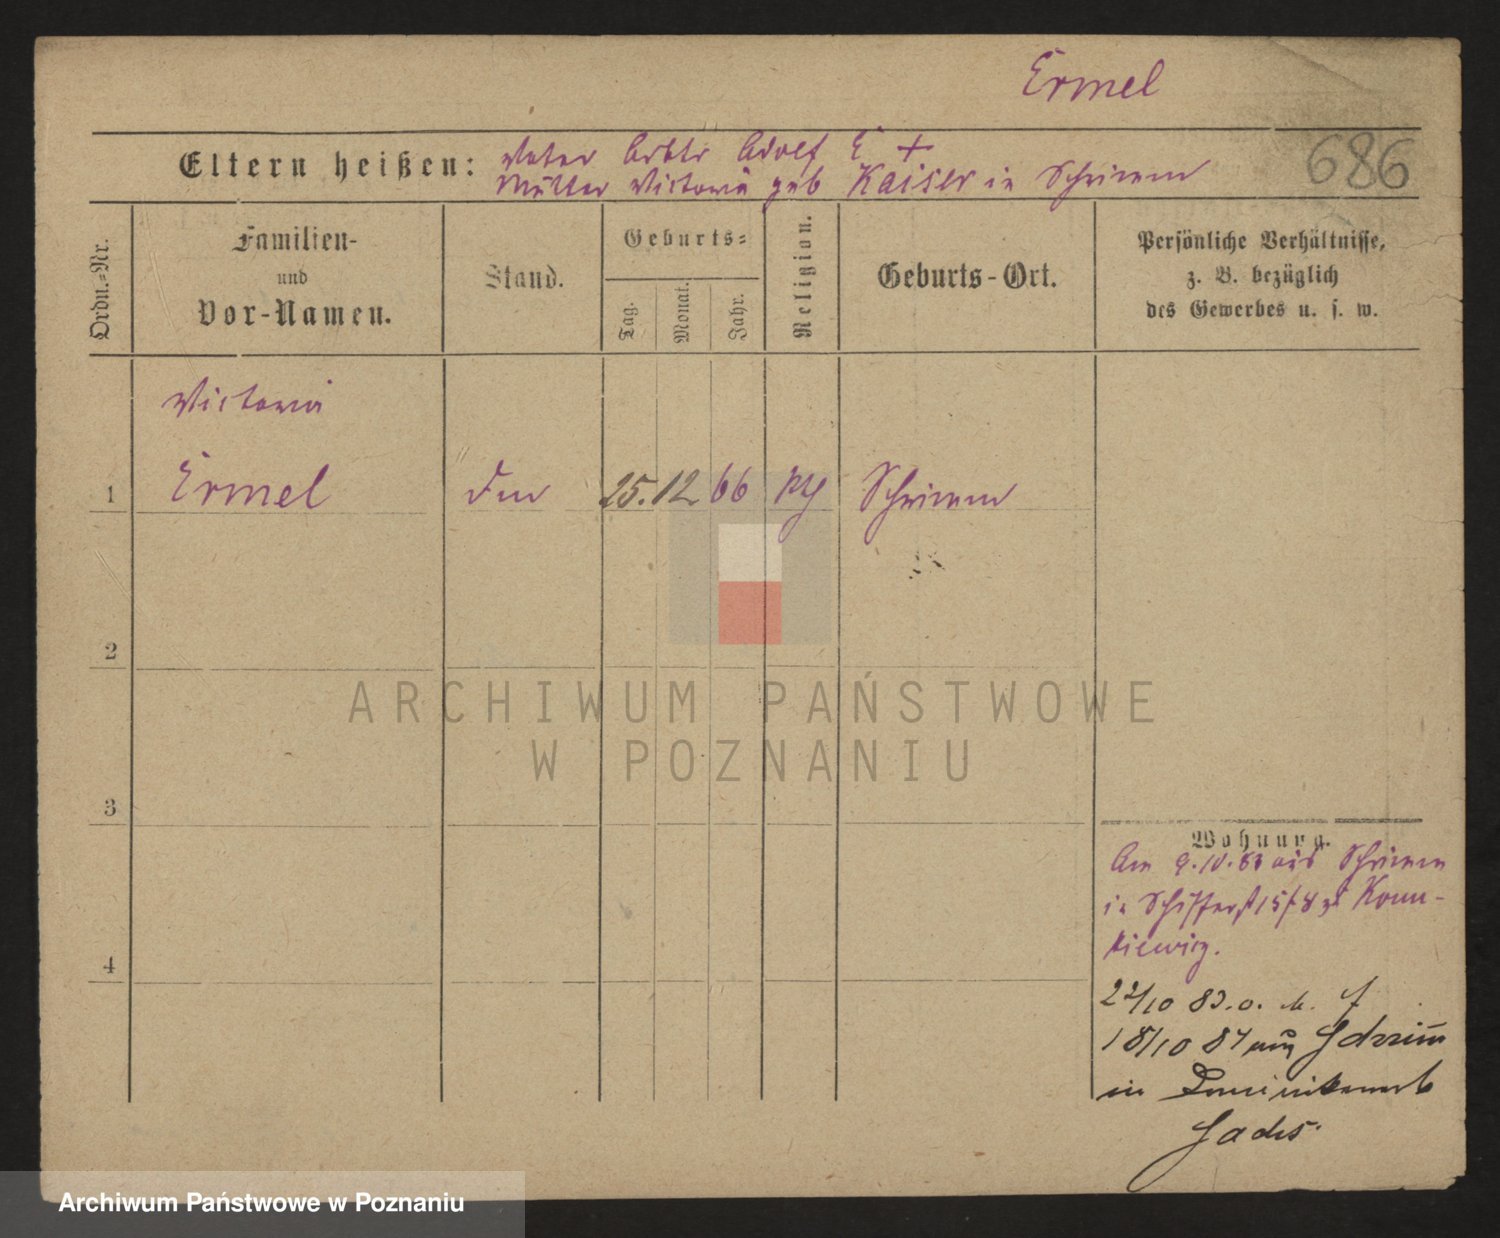 Ermel
686
Eltern heißen: Vater Arbtr Adolf E +
Mutter Victoria geb Kaiser in Schrimm
Ordn.-Nr.
Familien-
und
Vor-Namen.
Stand.
Geburts-
Tag.
Monat.
Jahr.
Religion.
Geburts-Ort.
Persönliche Verhältnisse,
z. B. bezüglich
des Gewerbes u. s. w.
Victoria
1 Ermel 25. 12 66 Schrimm
2
3
4
Wohnung.
Am 9.10.83 aus Schrimm
in Schifferst 15/8 zu
22/10 83. o. M.
18/10 84 aus Schrimm
in
ARCHIWUM PAŃSTWOWE
W POZNANIU
Archiwum Państwowe w Poznaniu